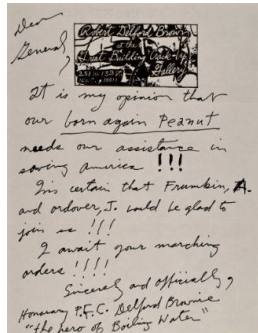 Dear
General,
Robert Delford Brown
at the
Great Building Crack-Up
Gallery
251 W. 13th St.
N.Y.C., 10011
It is my opinion that
our born again Peanut
needs our assistance in
saving america !!!
I'm certain that Frumkin, A.
and ordover, J. would be glad to
join us !!!
I await your marching
orders !!!!
Sincerely and officially,
Honorary P.F.C. Delford Brownie
"the hero of Boiling Water"